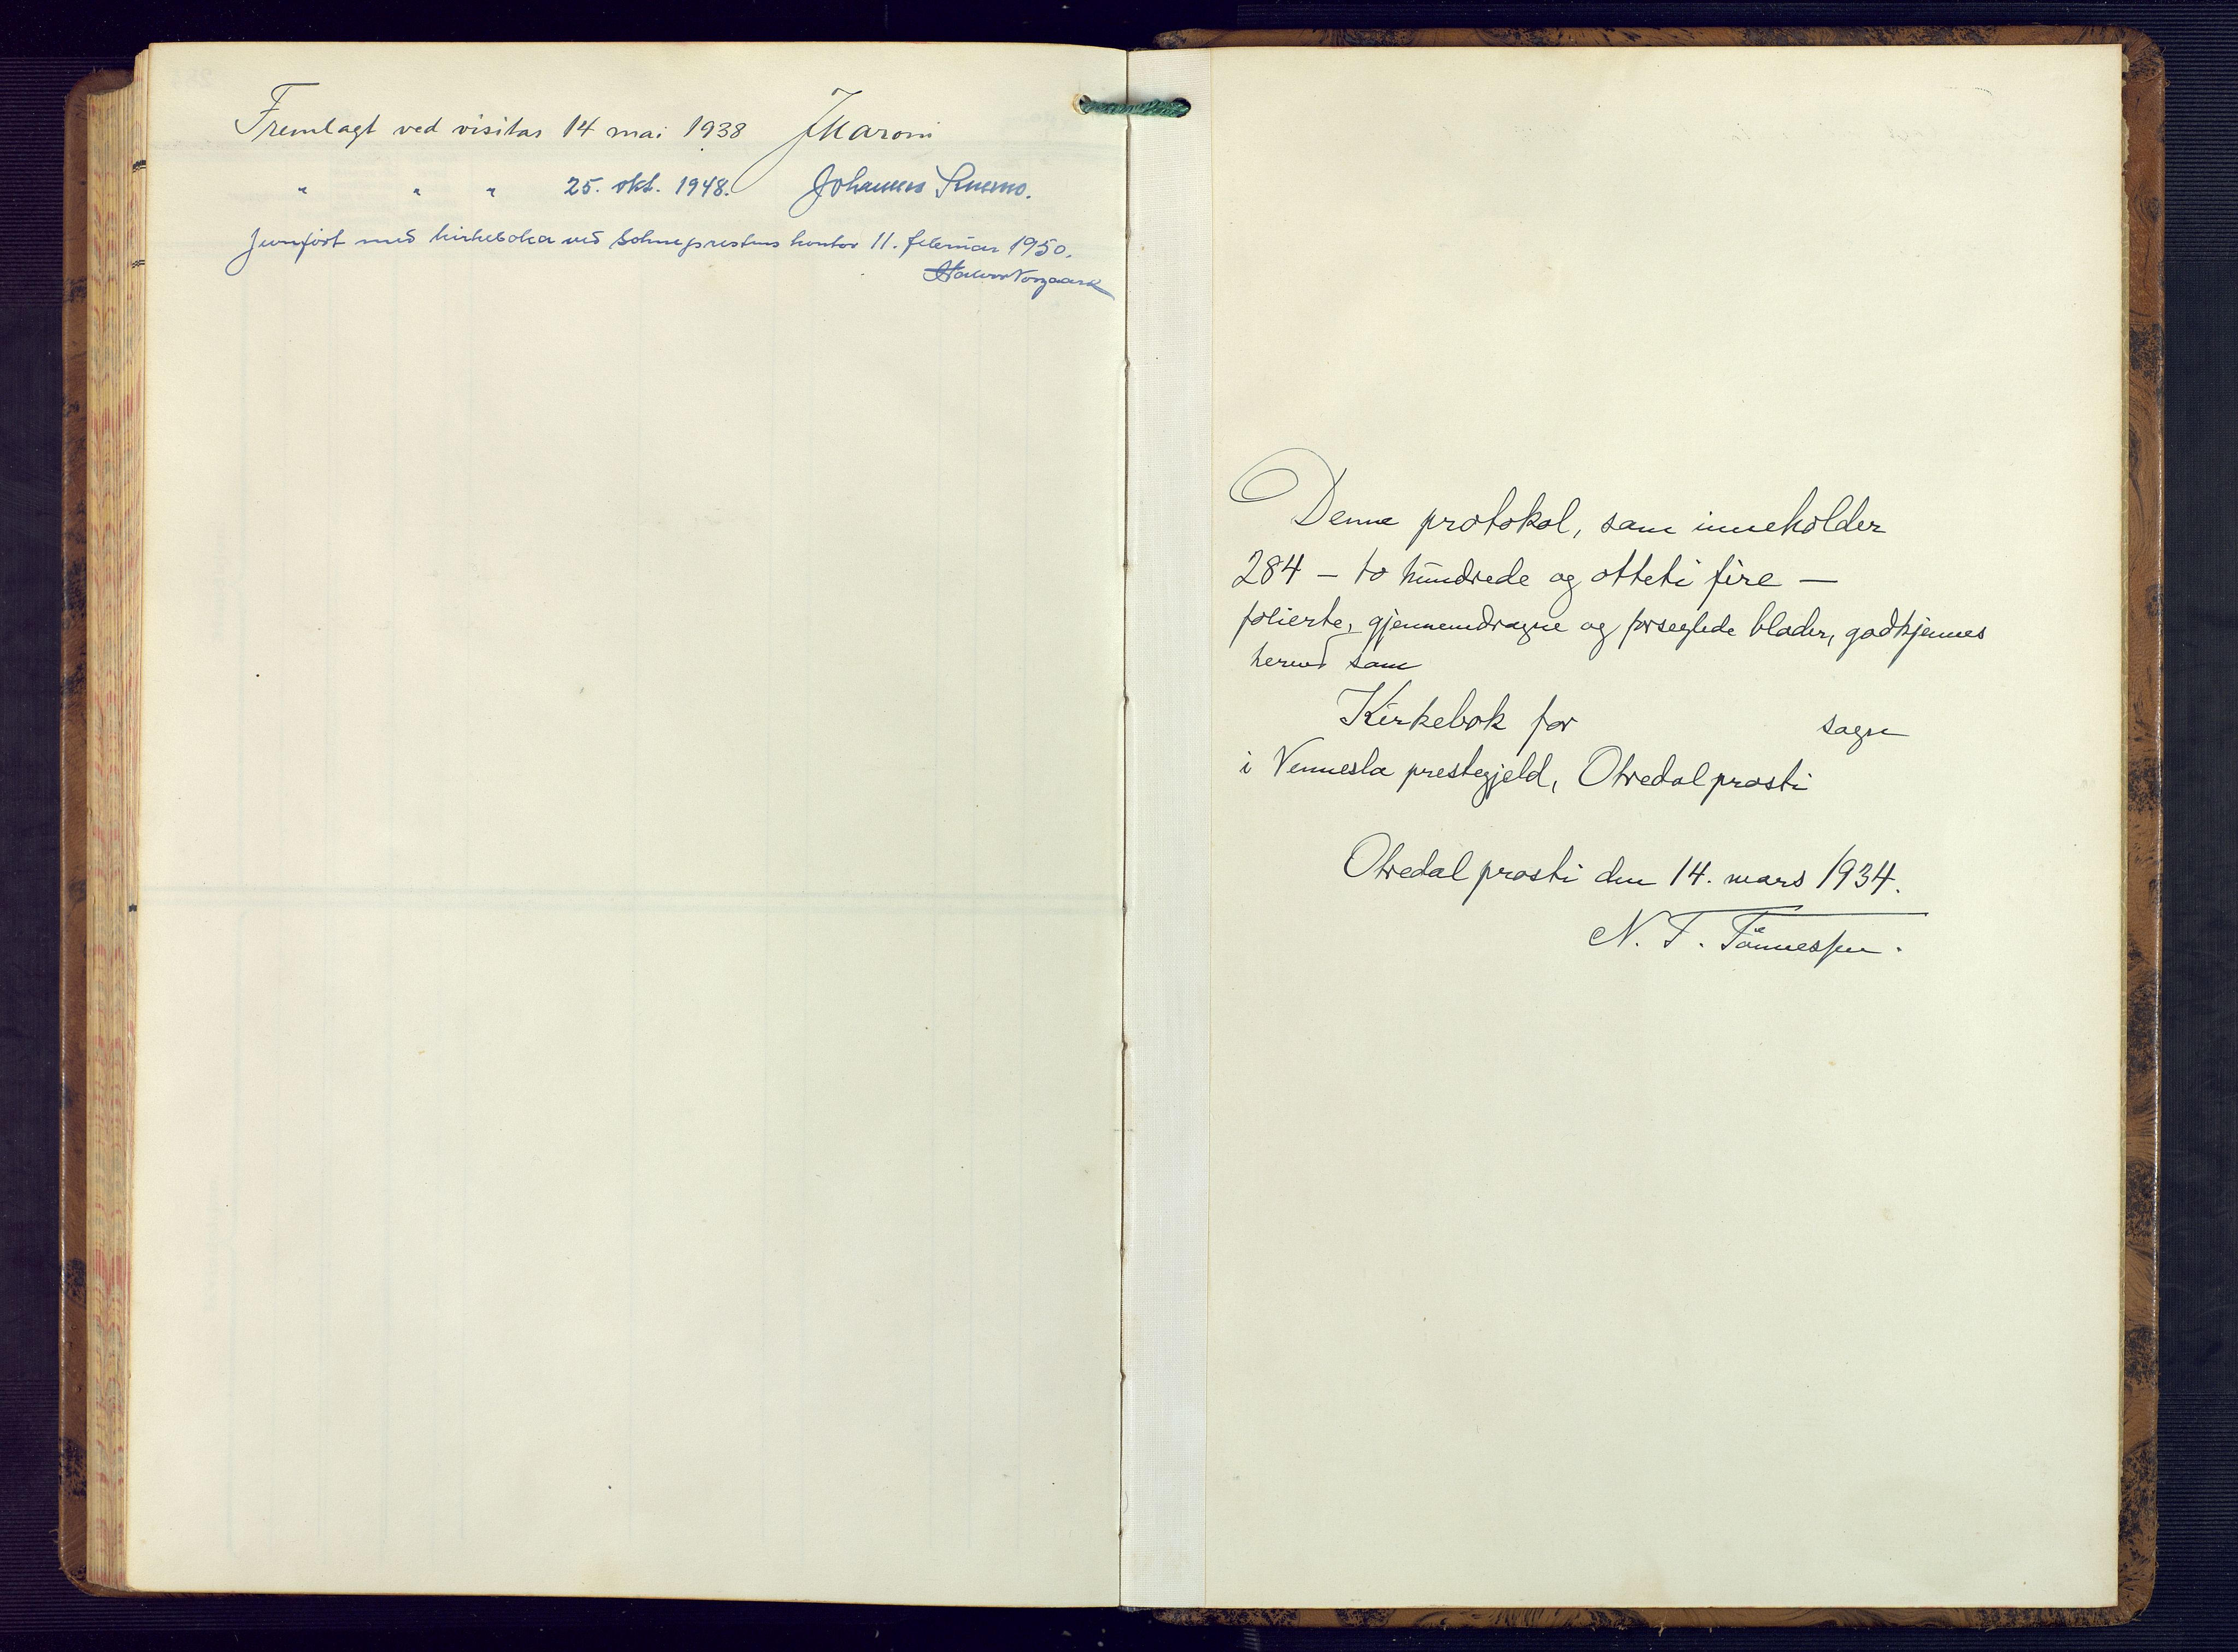 Fremlagt ved visitas 14 mai 1938 JMaroni
" " " 25. okt. 1948. Johannes Smemo.
Jevnført med kirkeboka ved sokneprestens kontor 11. februar 1950.
Halvor Norgaard
Denne protokol, som inneholder
284 – to hundrede og otteti fire –
folierte, gjennemdragne og forseglede blader, godkjennes
herved som
Kirkebok for sogn
i Vennesla prestegjeld, Otredal prosti
Otredal prosti den 14. mars 1934.
N. F. Tønnessen.